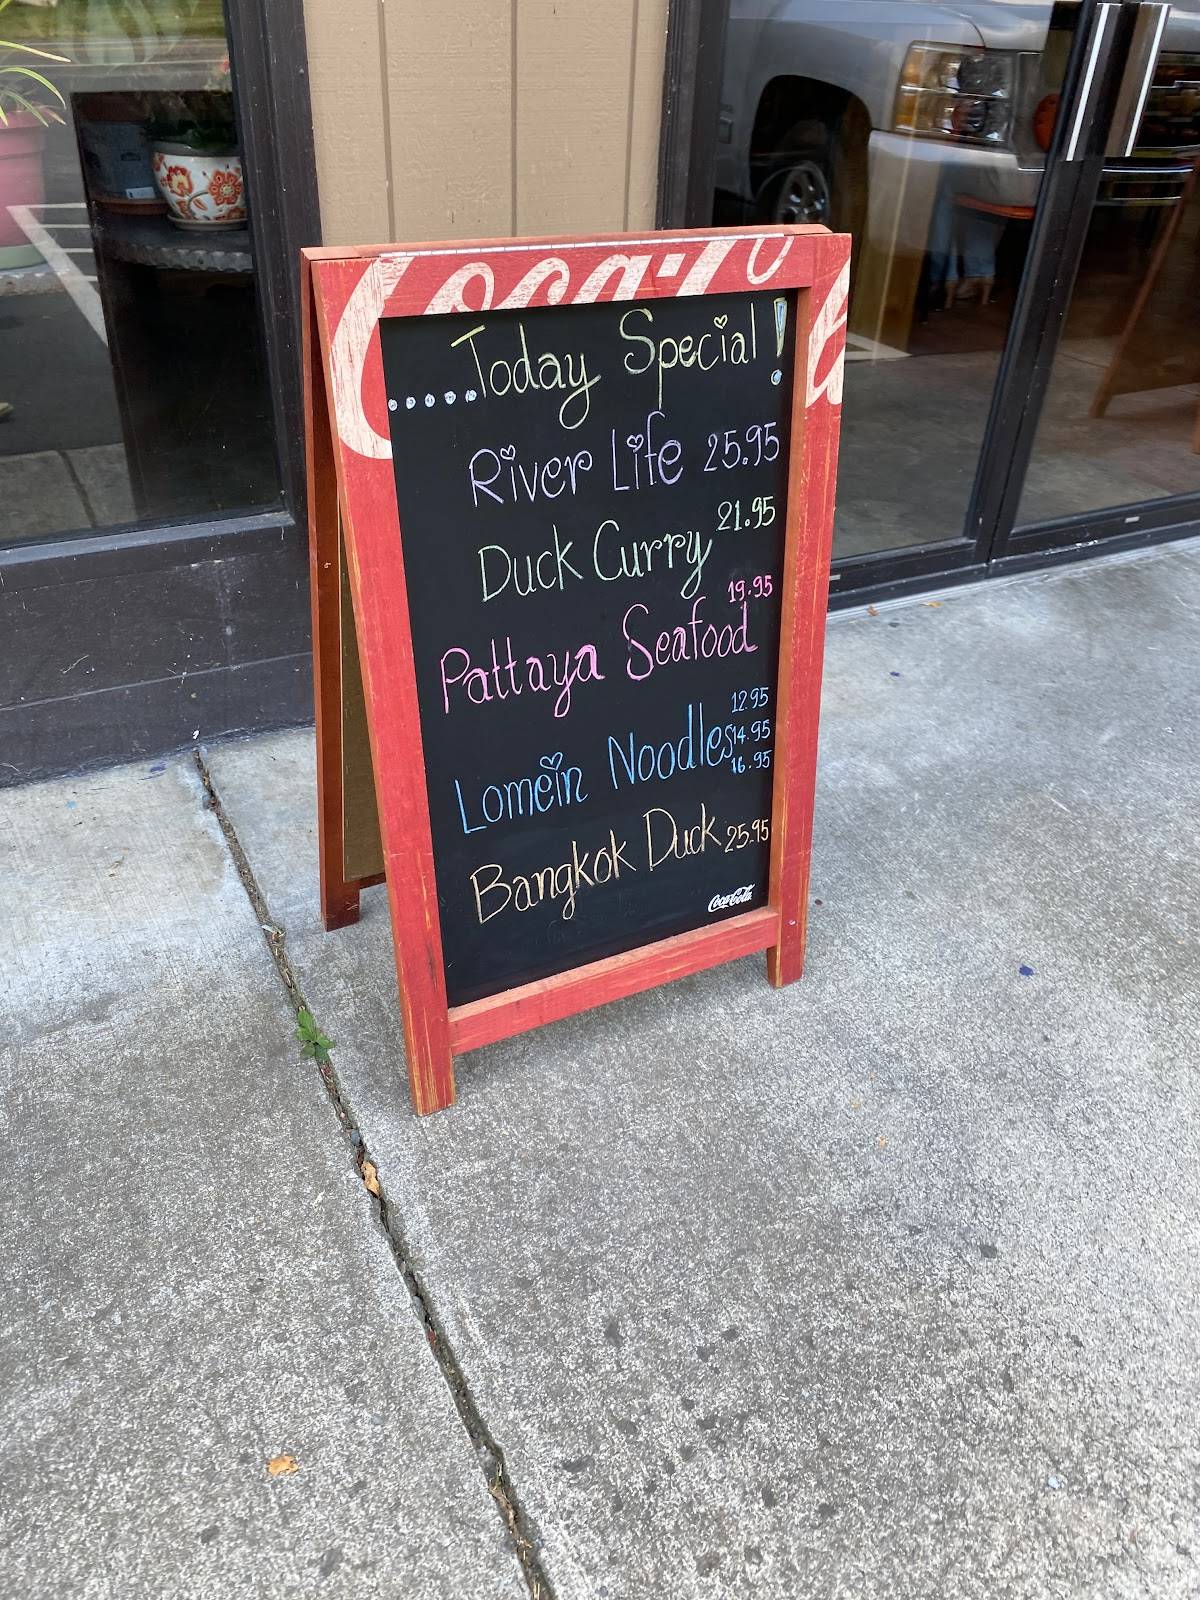 Coca-Cola
.....Today Special!
River Life 25.95
Duck Curry 21.95
Pattaya Seafood 19.95
Lomein Noodles 12.95
14.95
16.95
Bangkok Duck 25.95
Coca-Cola